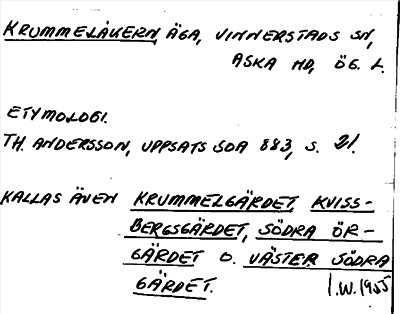 KRUMMELÅKERN, ÄGA, VINNERSTADS SN,
ASKA HD, ÖG. L.
ETYMOLOGI.
TH. ANDERSSON, UPPSATS SOA 883, S. 21.
KALLAS ÄVEN KRUMMELGÄRDET, KVISS-
BERGSGÄRDET, SÖDRA ÖR-
GÄRDET O. VÄSTER SÖDRA
GÄRDET. I.W. 1955